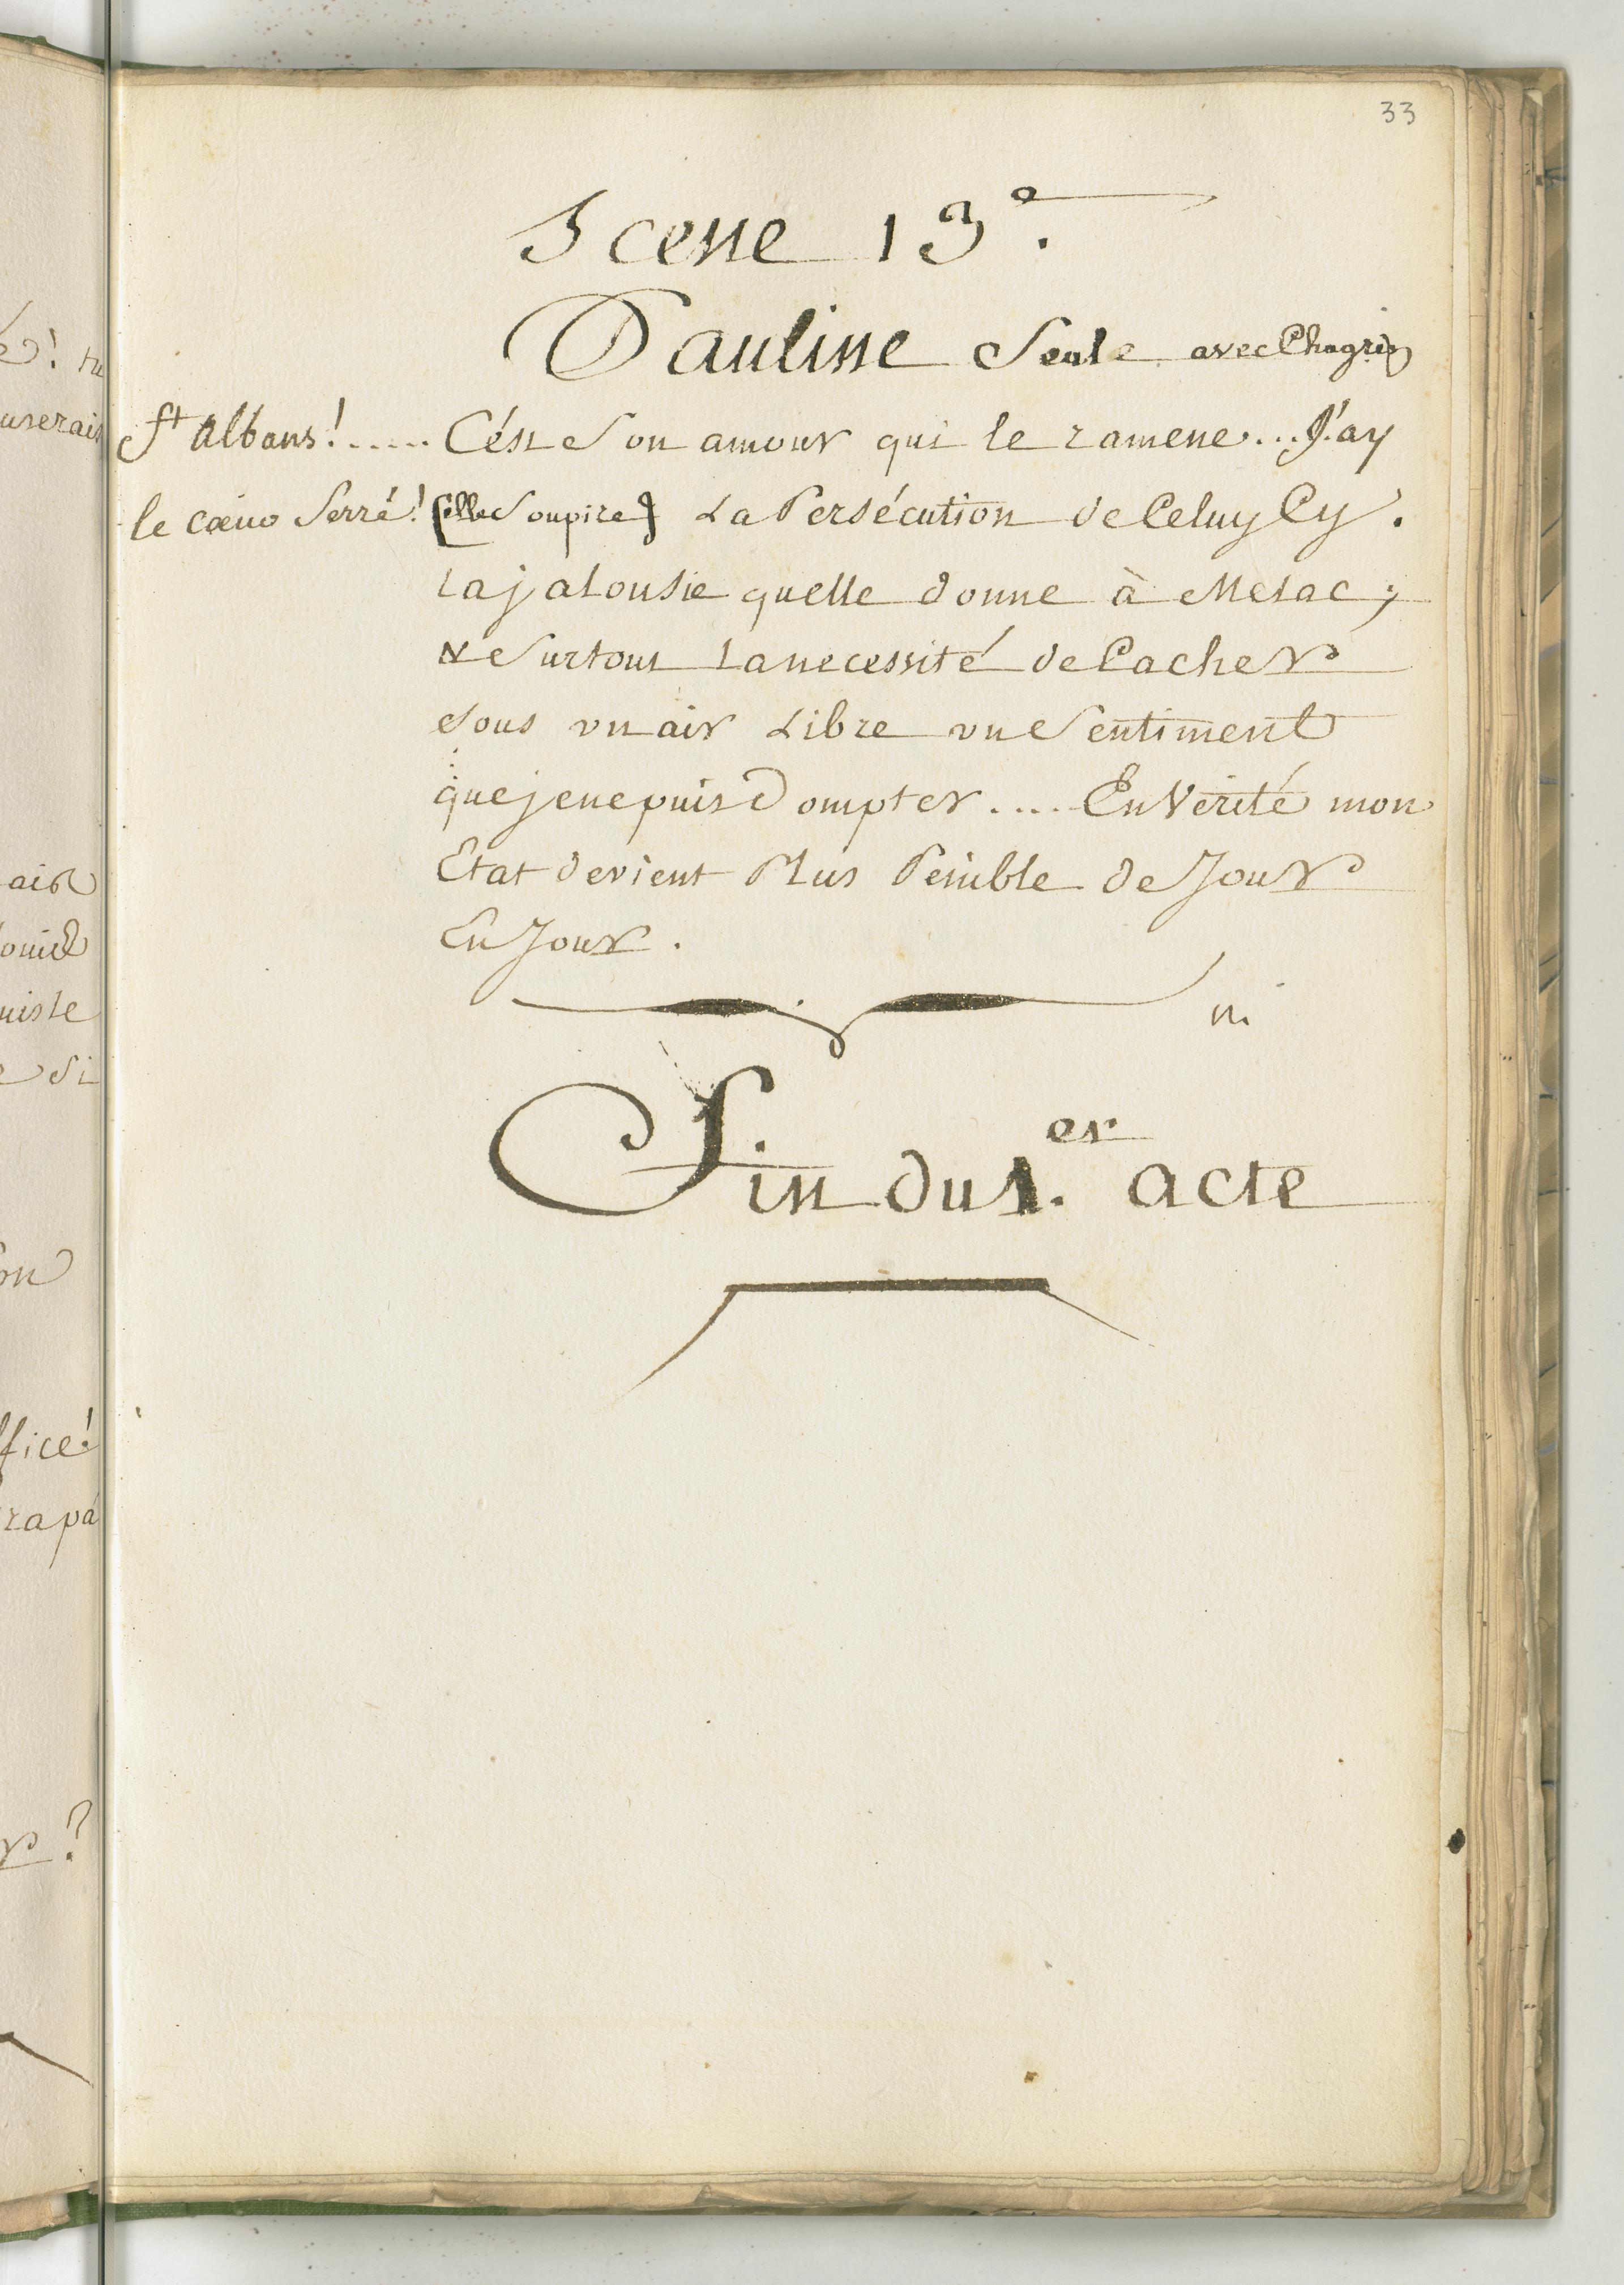 33
Scene 13e.
Pauline Seule avec Chagrin
St Albans!..... C'ést Son amour qui le ramene... J'ay
le cœur Serré! [elle Soupire] La Persécution de Celuy Cy.
la jalousie quelle donne à Melac;
& Surtout la necessité de Cacher
Sous un air Libre un Sentiment
que je ne puis Dompter.... En Vérité mon
Etat devient Plus Penible de Jour
En Jour.
Fin du 1.er acte